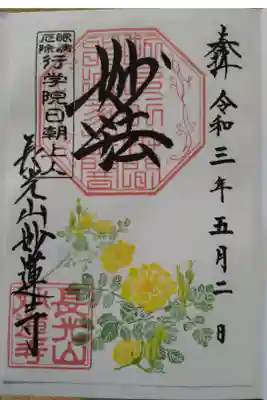 奉拝 令和三年五月二日
妙法
眼病厄除 行学院日朝上人
長光山妙蓮寺
長光山
妙蓮寺